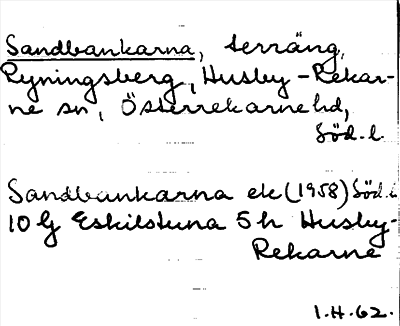 Sandbankarna, terräng,
Ryningsberg, Husby-Rekar-
ne sn, Österrekarne hd,
Söd. l.
Sandbankarna ek (1958) Söd. l.
10 G Eskilstuna 5h Husby-
Rekarne
I.H.62.